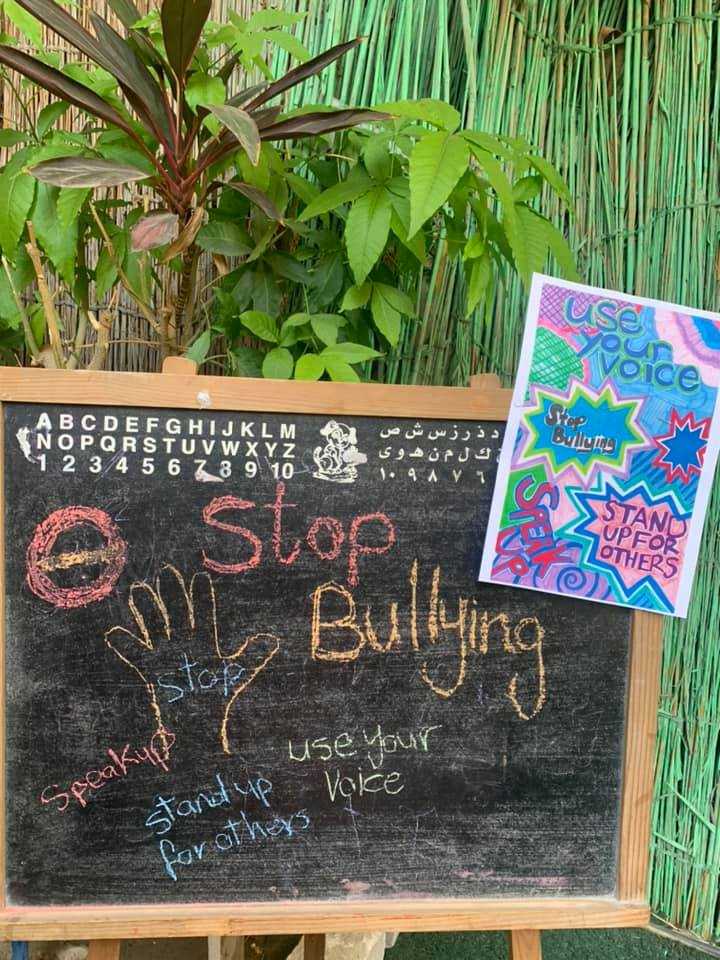 A B C D E F G H I J K L M
N O P Q R S T U V W X Y Z
1 2 3 4 5 6 7 8 9 10
د ذ ر ز س ش ص
ك ل م ن ه و ى
٦ ٧ ٨ ٩ ١٠
Stop
Bullying
stop
Speakup
use your
Voice
stand up
for others
use
your
voice
Stop
Bullying
SPEAK
UP
STAND
UP FOR
OTHERS